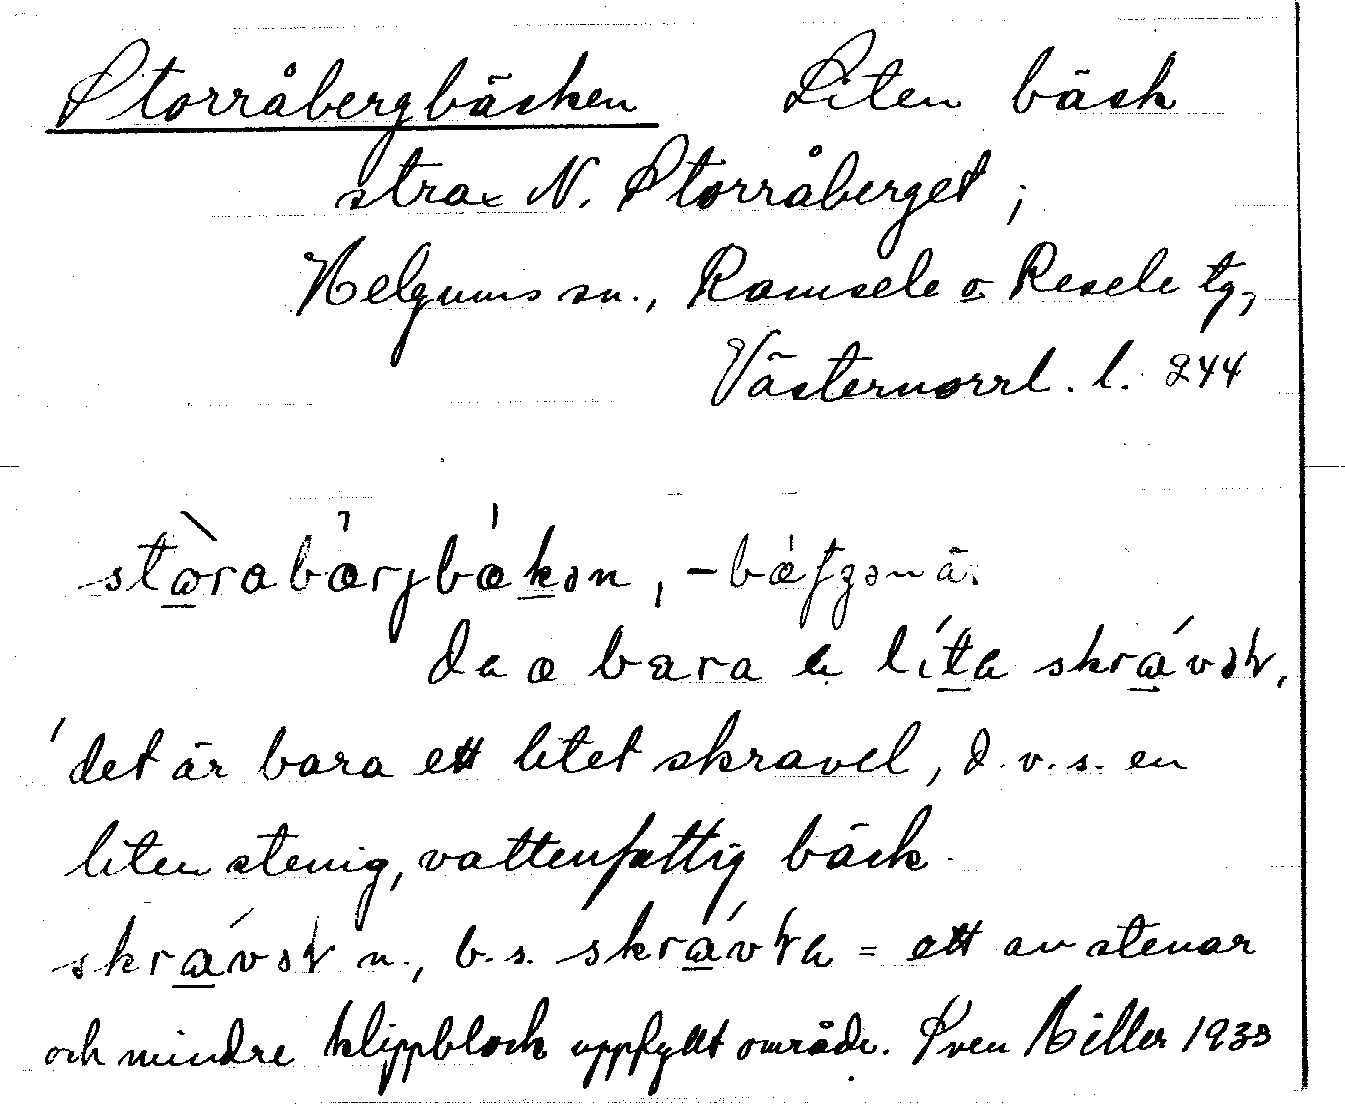 Storråbergbäcken Liten bäck
strax N. Storråberget;
Helgums sn., Ramsele o Resele tg,
Västernorrl. l. 244
da æ bara
'det är bara ett litet skravel, d.v.s. en
liten stenig, vattenfattig bäck.
n., b.s. = ett av stenar
och mindre klippblock uppfyllt område. Sven 1933